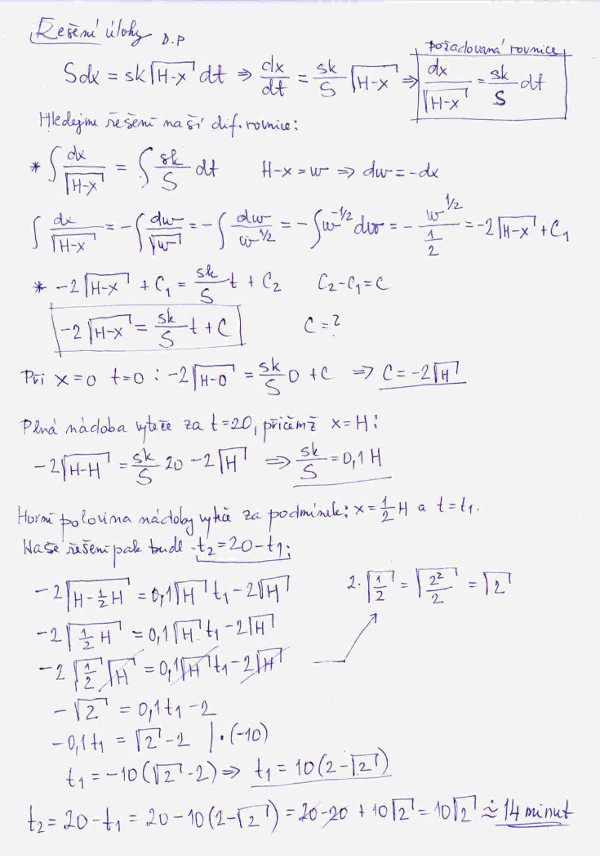 Řešení úlohy D.P
požadovaná rovnice
Sdx = sk√(H-x) dt ⇒ dx/dt = sk/S √(H-x) ⇒ dx/√(H-x) = sk/S dt
Hledejme řešení naší dif. rovnice:
* ∫ dx/√(H-x) = ∫ sk/S dt H-x = w ⇒ dw = -dx
∫ dx/√(H-x) = -∫ dw/√w = -∫ dw/w^1/2 = -∫ w^-1/2 dw = - w^1/2 / 1/2 = -2√(H-x) + C₁
* -2√(H-x) + C₁ = sk/S t + C₂ C₂-C₁ = C
-2√(H-x) = sk/S t + C C = ?
Při x=0 t=0 : -2√(H-0) = sk/S 0 + C ⇒ C = -2√H
Plná nádoba vyteče za t=20, přičemž x=H:
-2√(H-H) = sk/S 20 - 2√H ⇒ sk/S = 0,1 H
Horní polovina nádoby vyteče za podmínek: x = 1/2 H a t = t₁.
Naše řešení pak bude t₂ = 20 - t₁:
-2√(H - 1/2 H) = 0,1√H t₁ - 2√H 2·√(1/2) = √(2²/2) = √2
-2√(1/2 H) = 0,1√H t₁ - 2√H
-2√(1/2) √H = 0,1√H t₁ - 2√H
-√2 = 0,1t₁ - 2
-0,1t₁ = √2 - 2 | ·(-10)
t₁ = -10(√2 - 2) ⇒ t₁ = 10(2 - √2)
t₂ = 20 - t₁ = 20 - 10(2 - √2) = 20 - 20 + 10√2 = 10√2 ≐ 14 minut